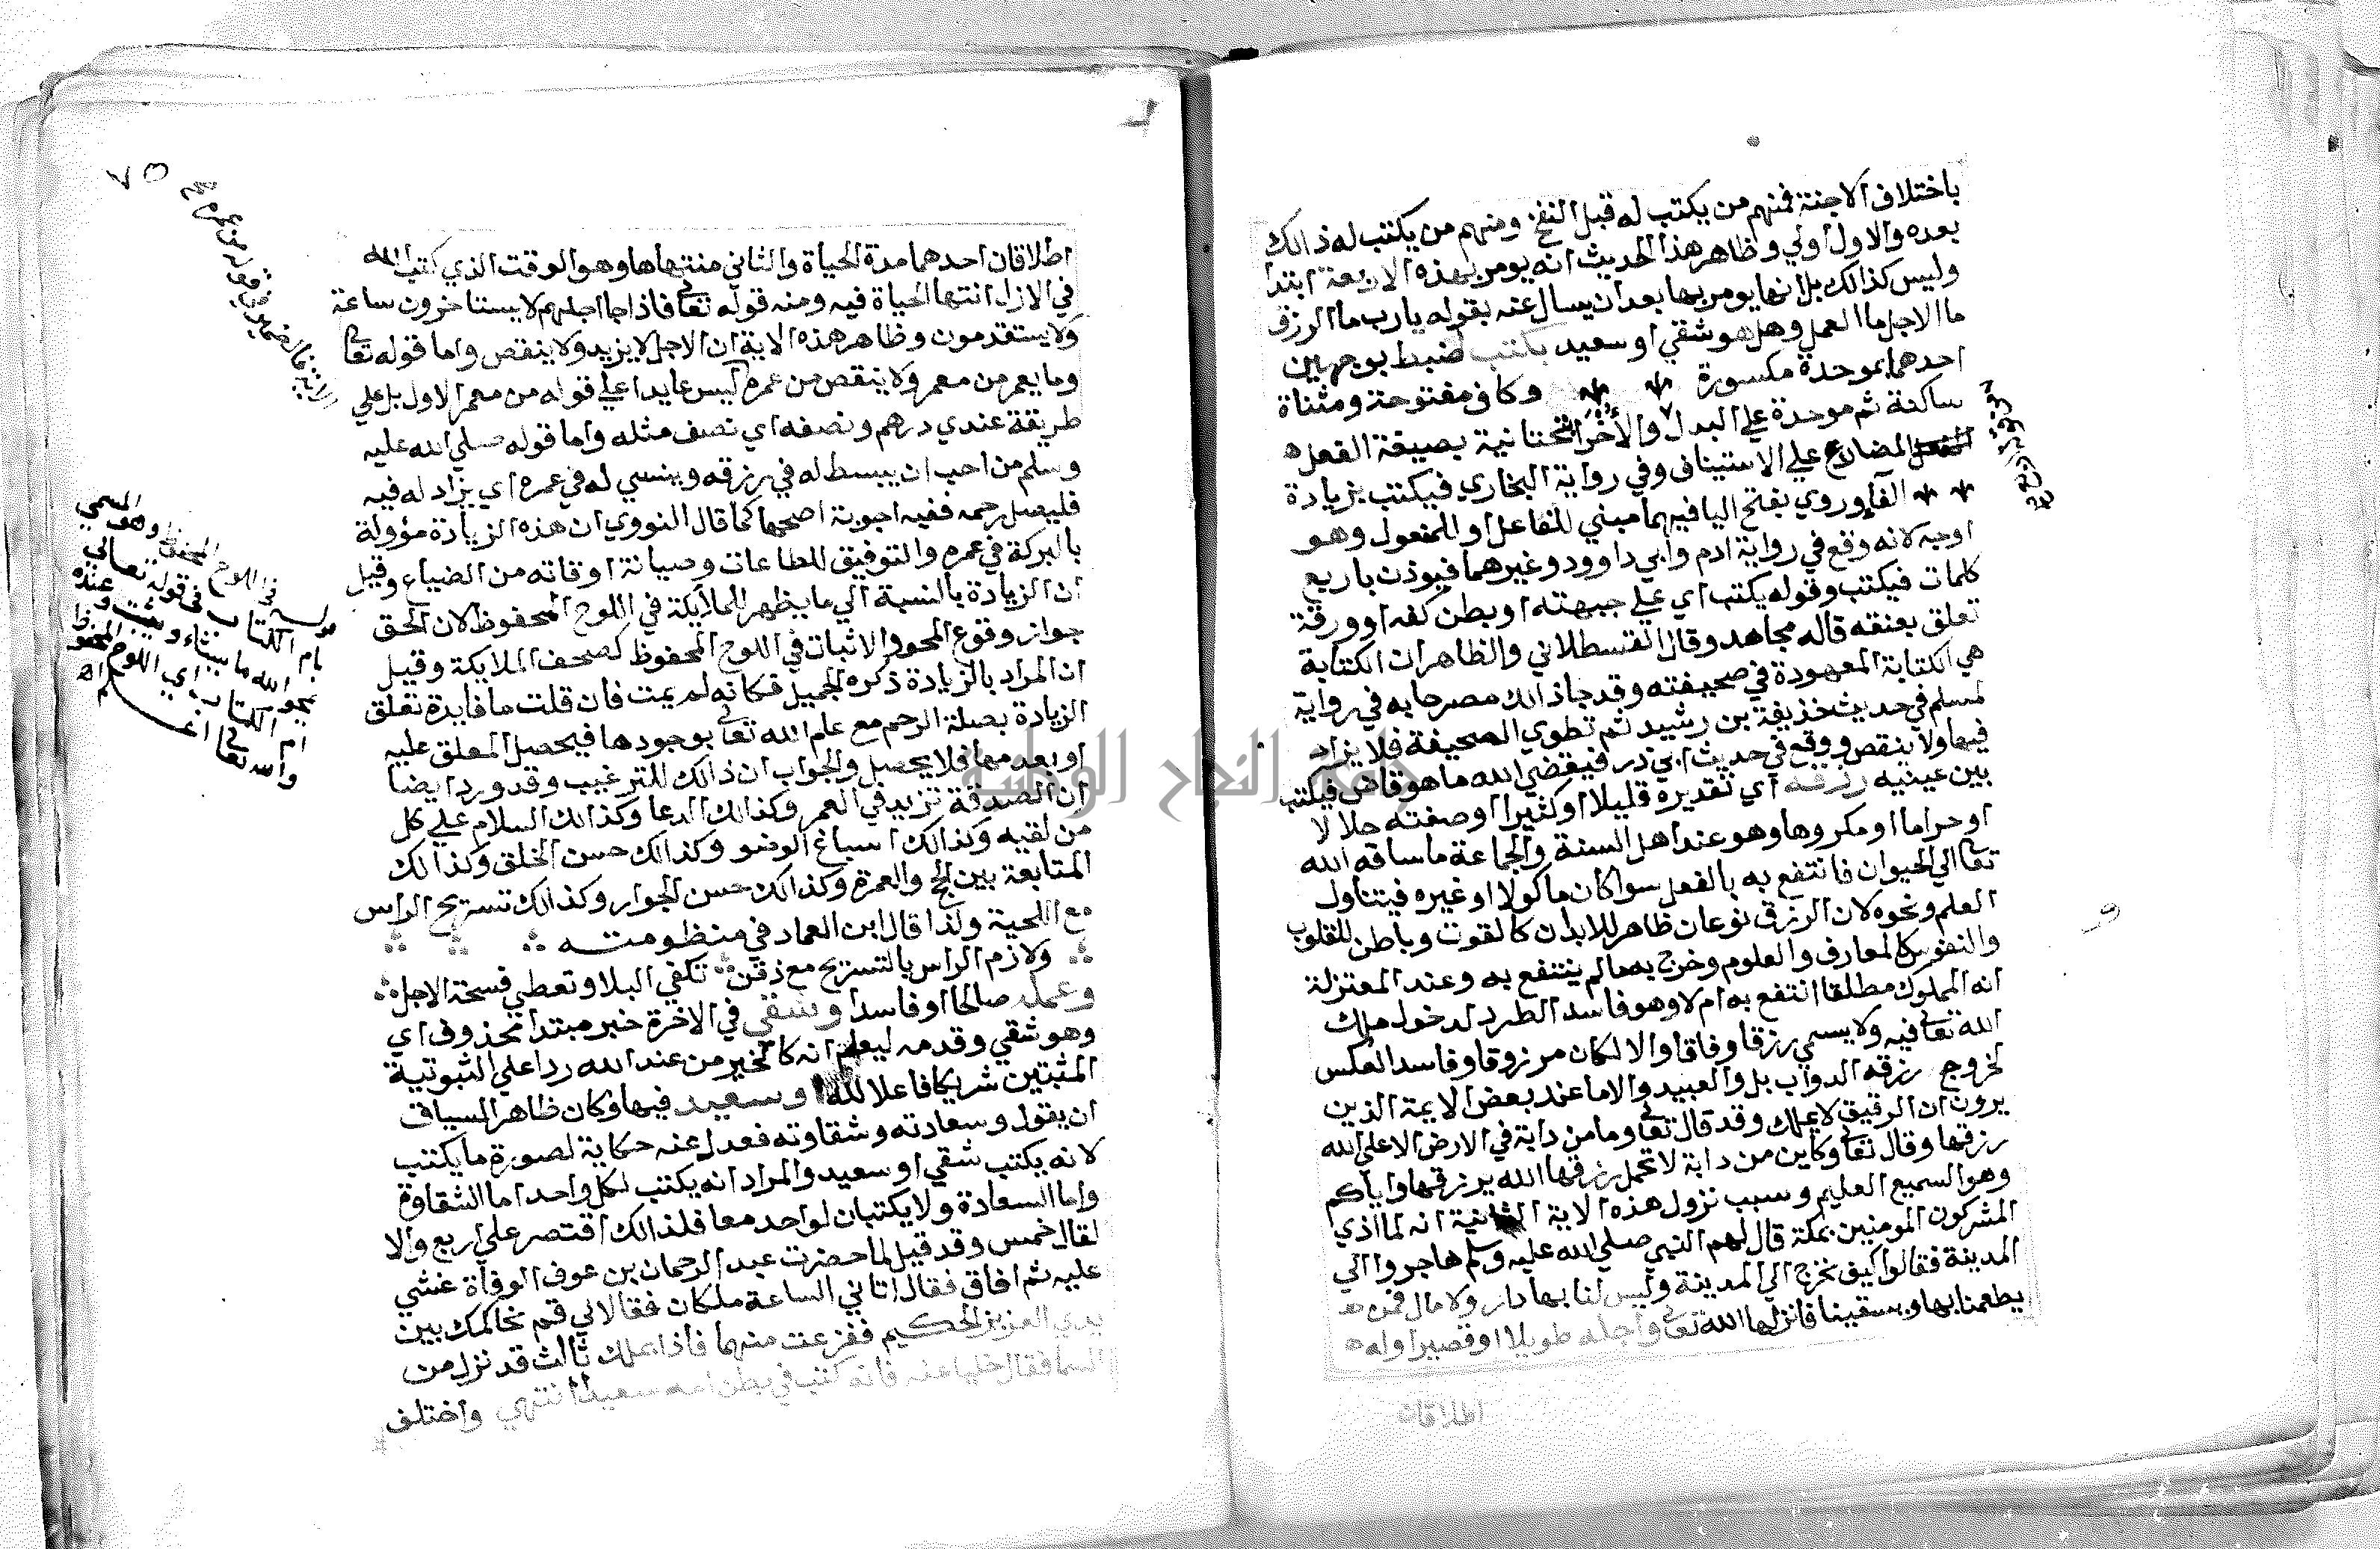 باختلاف الاجنة فمنهم من يكتب له قبل النفخ ومنهم من يكتب له ذالك
بعده والاول اولي وظاهر هذا الحديث انه يومر بهذه الاربعة ابتدا
وليس كذالك بل انها يومر بها بعد ان يسال عنه بقوله يا رب ما الرزق
ما الاجل ما العمل وهل هو شقي او سعيد بكتب ضبط بوجهين
احدهما بموحدة مكسورة وكاف مفتوحة ومثناة
ساكنة ثم موحدة علي البدل والأخر اتحتانية بصيغة الفعل
المضارع علي الاستيناف وفي رواية البخاري فيكتب بزيادة
الفا وروي بفتح اليا فيهما مبني للفاعل او للمفعول وهو
اوجه لانه وقع في رواية ادم وابي داوود وغيرهما فيوذن باربع
كلمات فيكتب وقوله يكتب اي علي جبهته او بطن كفه او ورقة
تعلق بعنقه قاله مجاهد وقال القسطلاني والظاهر ان الكتابة
هي الكتابة المعهودة في صحيفته وقد جا ذالك مصرحا به في رواية
لمسلم في حديث حذيفة بن رشيد ثم تطوي الصحيفة فلا يزاد
فيها ولا ينقص ووقع في حديث ابي ذر فيقضي الله ما هو قاض فيكتب
بين عينيه رزقه اي تقديره قليلا او كثيرا او صفته حلالا
او حراما او مكروها وهو عند اهل السنة والجماعة ما ساقه الله
تعالي الي الحيوان فانتفع به بالفعل سوا كان ماكولا او غيره فيتناول
العلم ونحوه لان الرزق نوعان ظاهر للابدان كالقوت وباطن للقلوب
والنفوس كالمعارف والعلوم وخرج به ما لم ينتفع به وعند المعتزلة
انه المملوك مطلقا انتفع به ام لا وهو فاسد الطرد لدخول ملك
الله تعالي فيه ولا يسمي رزقا وفاقا والا لكان مرزوقا وفاسد العكس
لخروج رزقه الدواب بل والعبيد والاما عند بعض الايمة الذين
يرون ان الرقيق لا يملك وقد قال تعالي وما من دابة في الارض الا علي الله
رزقها وقال تعالي وكاين من دابة لا تحمل رزقها الله يرزقها واياكم
وهو السميع العليم وسبب نزول هذه الاية الثانية انه لما اذي
المشركون المومنين بمكة قال لهم النبي صلي الله عليه وسلم هاجروا الي
المدينة فقالوا كيف نخرج الي المدينة وليس لنا بها دار ولا مال فمن
يطعمنا بها ويسقينا فانزلها الله تعالي واجله طويلا او قصيرا وله
اطلاقان
٧٥
اطلاقان احدهما مدة الحياة والثاني منتهاها وهو الوقت الذي كتب الله
في الازل انتها الحياة فيه ومنه قوله تعالي فاذا جا اجلهم لا يستاخرون ساعة
ولا يستقدمون وظاهر هذه الاية ان الاجل لا يزيد ولا ينقص واما قوله تعالي
وما يعمر من معمر ولا ينقص من عمره ليس عايدا علي قوله من معمر الاول بل علي
طريقة عندي درهم ونصفه اي نصف مثله واما قوله صلي الله عليه
وسلم من احب ان يبسط له في رزقه وينسي له في عمره اي يزاد له فيه
فليصل رحمه ففيه اجوبة اصحها كما قال النووي ان هذه الزيادة مؤولة
بالبركة في عمره والتوفيق للطاعات وصيانة اوقاته من الضياع وقيل
ان الزيادة بالنسبة الي ما يظهر للملايكة في اللوح المحفوظ لان الحق
جواز وقوع المحو والاثبات في اللوح المحفوظ كصحف الملايكة وقيل
ان المراد بالزيادة ذكره الجميل فكانه لم يمت فان قلت ما فايدة تعلق
الزيادة بصلة الرحم مع علم الله تعالي بوجودها فيحصل المعلق عليه
او بعدمها فلا يحصل والجواب ان ذالك للترغيب وقد ورد ايضا
ان الصدقة تزيد في العمر وكذالك الدعا وكذالك السلام علي كل
من لقيه وكذالك اسباغ الوضو وكذالك حسن الخلق وكذالك
المتابعة بين الحج والعمرة وكذالك حسن الجوار وكذالك تسريح الراس
مع اللحية ولذا قال ابن العماد في منظومته
ولازم الراس بالتسريح مع ذقن تكفي البلا وتعطي فسحة الاجل
وعمله صالحا او فاسدا وشقي في الاخرة خبر مبتدا محذوف اي
وهو شقي وقدمه ليعلم انه كالخير من عند الله ردا علي الثبوتية
المثبتين شريكا فاعلا لله وسعيد فيها وكان ظاهر السياق
ان يقول وسعادته وشقاوته فعدل عنه حكاية لصورة ما يكتب
لانه يكتب شقي او سعيد والمراد انه يكتب لكل واحد اما الشقاوة
واما السعادة ولا يكتبان لواحد معا فلذالك اقتصر علي اربع والا
لقال خمس وقد قيل لما حضرت عبد الرحمان بن عوف الوفاة غشي
عليه ثم افاق فقال اتاني الساعة ملكان فقالا لي قم نحاكمك بين
يدي العزيز الحكيم ففزعت منهما فاذا بملك ثالث قد نزل من
السما فقال خليا عنه فانه كتب في بطن امه سعيدا انتهي واختلف
قوله في اللوح المحفوظ وهو المسمي
بام الكتاب في قوله تعالي
يمحو الله ما يشاء ويثبت وعنده
ام الكتاب اي اللوح المحفوظ
والله تعالي اعلم اه
جامعة النجاح الوطنية